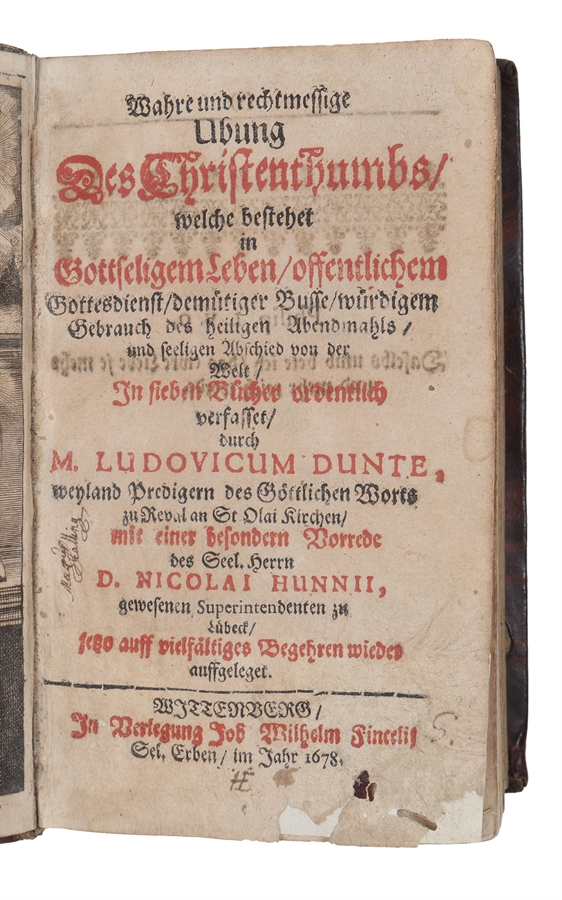 Wahre und rechtmessige
Ubung
Des Christenthumbs/
welche bestehet
in
Gottseligem Leben/offentlichem
Gottesdienst/demütiger Busse/würdigem
Gebrauch des heiligen Abendmahls/
und seeligen Abschied von der
Welt/
In sieben Bücher ordentlich
verfasset/
durch
M. LUDOVICUM DUNTE,
weyland Predigern des Göttlichen Worts
zu Reval an St Olai Kirchen/
mit einer besondern Vorrede
des Seel. Herrn
D. NICOLAI HUNNII,
gewesenen Superintendenten zu
Lübeck/
jetzo auff vielfältiges Begehren wieder
auffgeleget.
WITTENBERG/
In Verlegung Job Wilhelm Fincelij
Sel. Erben/ im Jahr 1678.